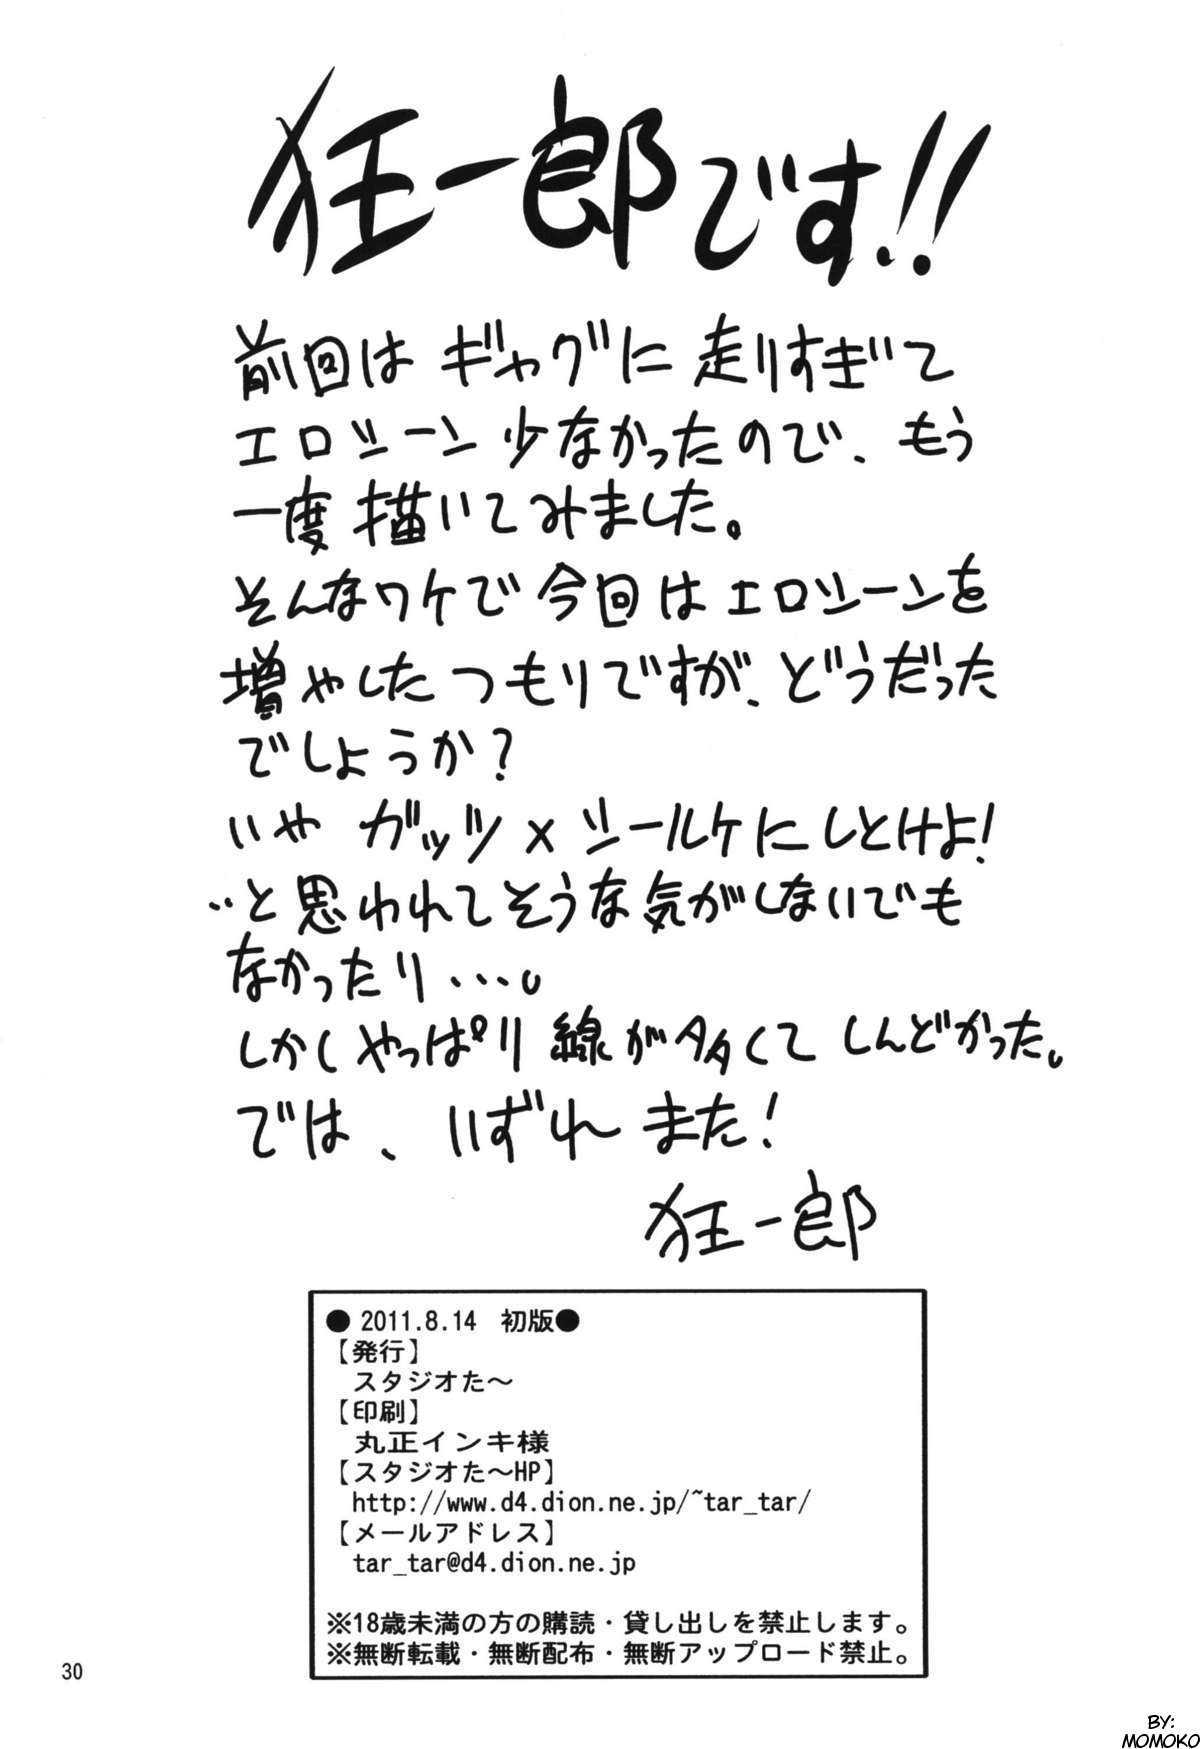 狂一郎です!!
前回はギャグに走りすぎて
エロシーン少なかったので、もう
一度描いてみました。
そんなワケで今回はエロシーンを
増やしたつもりですが、どうだった
でしょうか?
いやガッツ×シールケにしとけよ!
‥と思われてそうな気がしないでも
なかったり…。
しかしやっぱり線が多くてしんどかった。
では、いずれまた!
狂一郎
● 2011.8.14 初版●
【発行】
スタジオた~
【印刷】
丸正インキ様
【スタジオた~HP】
http://www.d4.dion.ne.jp/~tar_tar/
【メールアドレス】
tar_tar@d4.dion.ne.jp
※18歳未満の方の購読・貸し出しを禁止します。
※無断転載・無断配布・無断アップロード禁止。
30
BY:
MOMOKO